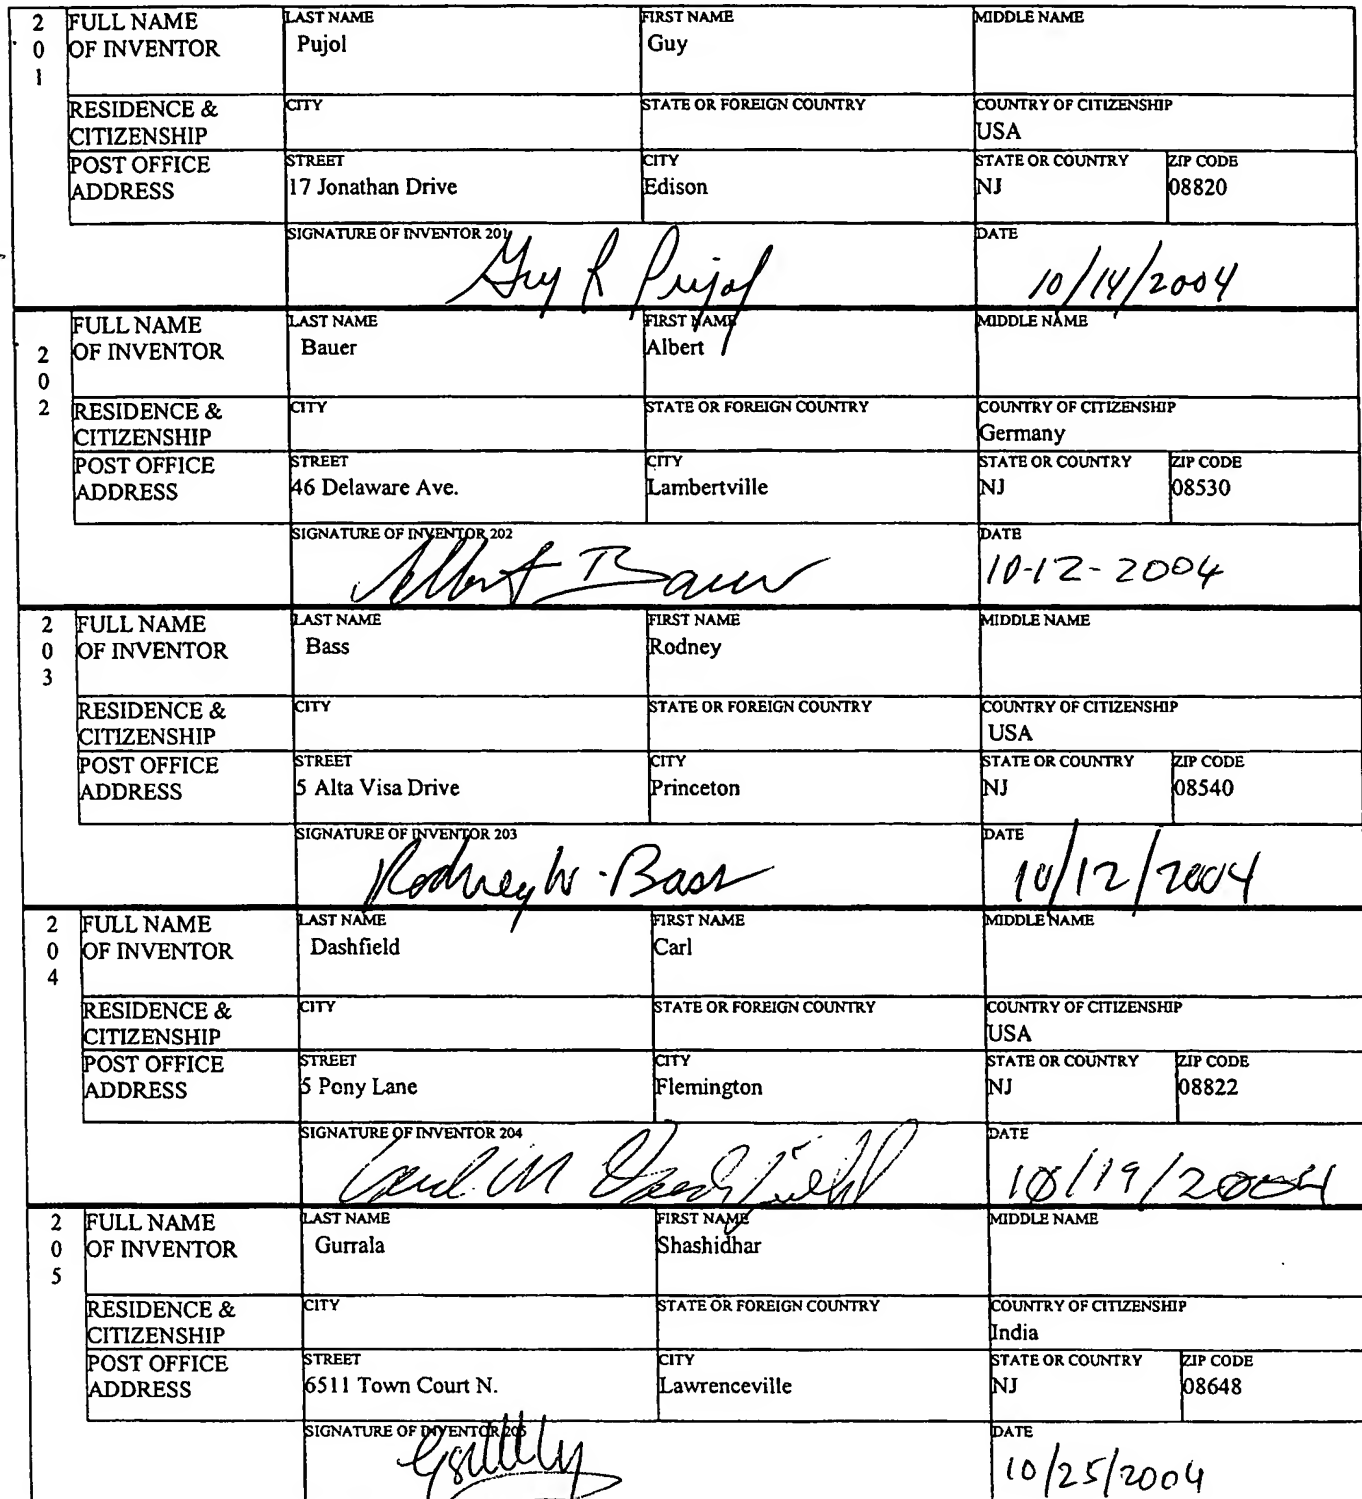 2 0 1 FULL NAME OF INVENTOR LAST NAME Pujol FIRST NAME Guy MIDDLE NAME
RESIDENCE & CITIZENSHIP CITY STATE OR FOREIGN COUNTRY COUNTRY OF CITIZENSHIP USA
POST OFFICE ADDRESS STREET 17 Jonathan Drive CITY Edison STATE OR COUNTRY NJ ZIP CODE 08820
SIGNATURE OF INVENTOR 201 Guy R Pujol DATE 10/14/2004
2 0 2 FULL NAME OF INVENTOR LAST NAME Bauer FIRST NAME Albert MIDDLE NAME
RESIDENCE & CITIZENSHIP CITY STATE OR FOREIGN COUNTRY COUNTRY OF CITIZENSHIP Germany
POST OFFICE ADDRESS STREET 46 Delaware Ave. CITY Lambertville STATE OR COUNTRY NJ ZIP CODE 08530
SIGNATURE OF INVENTOR 202 Albert Bauer DATE 10-12-2004
2 0 3 FULL NAME OF INVENTOR LAST NAME Bass FIRST NAME Rodney MIDDLE NAME
RESIDENCE & CITIZENSHIP CITY STATE OR FOREIGN COUNTRY COUNTRY OF CITIZENSHIP USA
POST OFFICE ADDRESS STREET 5 Alta Visa Drive CITY Princeton STATE OR COUNTRY NJ ZIP CODE 08540
SIGNATURE OF INVENTOR 203 Rodney W. Bass DATE 10/12/2004
2 0 4 FULL NAME OF INVENTOR LAST NAME Dashfield FIRST NAME Carl MIDDLE NAME
RESIDENCE & CITIZENSHIP CITY STATE OR FOREIGN COUNTRY COUNTRY OF CITIZENSHIP USA
POST OFFICE ADDRESS STREET 5 Pony Lane CITY Flemington STATE OR COUNTRY NJ ZIP CODE 08822
SIGNATURE OF INVENTOR 204 Carl M Dashfield DATE 10/19/2004
2 0 5 FULL NAME OF INVENTOR LAST NAME Gurrala FIRST NAME Shashidhar MIDDLE NAME
RESIDENCE & CITIZENSHIP CITY STATE OR FOREIGN COUNTRY COUNTRY OF CITIZENSHIP India
POST OFFICE ADDRESS STREET 6511 Town Court N. CITY Lawrenceville STATE OR COUNTRY NJ ZIP CODE 08648
SIGNATURE OF INVENTOR 205 DATE 10/25/2004